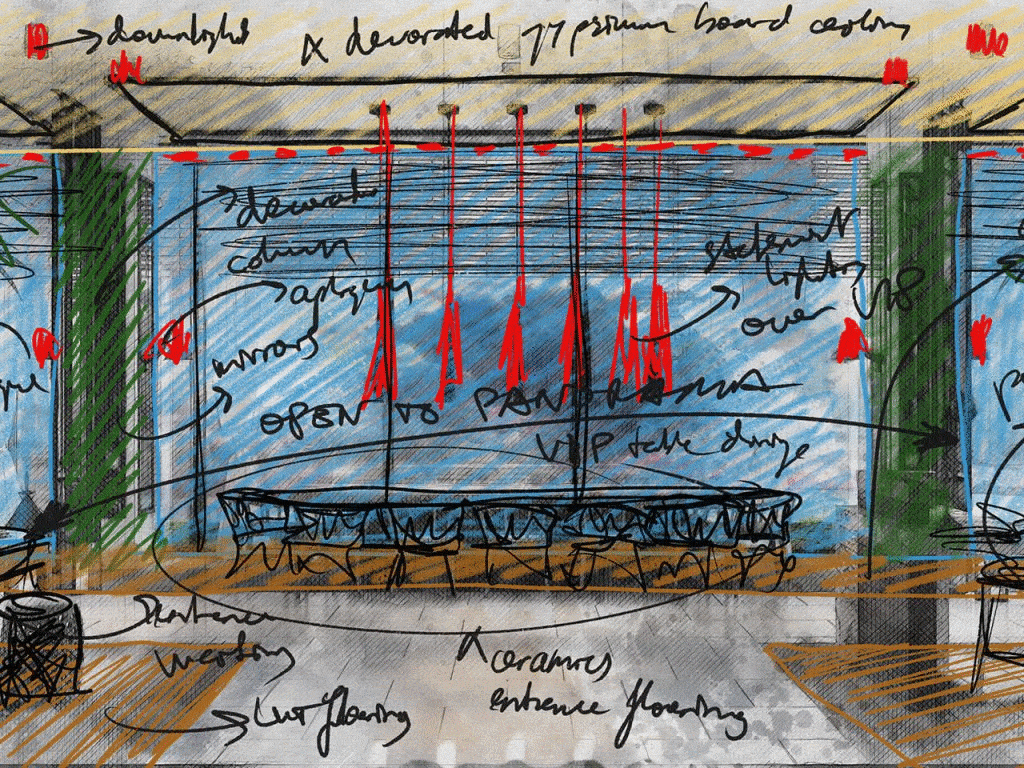 downlight
A decorated gypsum board ceiling
decorated
column
statement
lighting
over VIP
mirrors
OPEN TO PANORAMA
VIP table dining
entrance
ceramics
entrance flooring
flooring